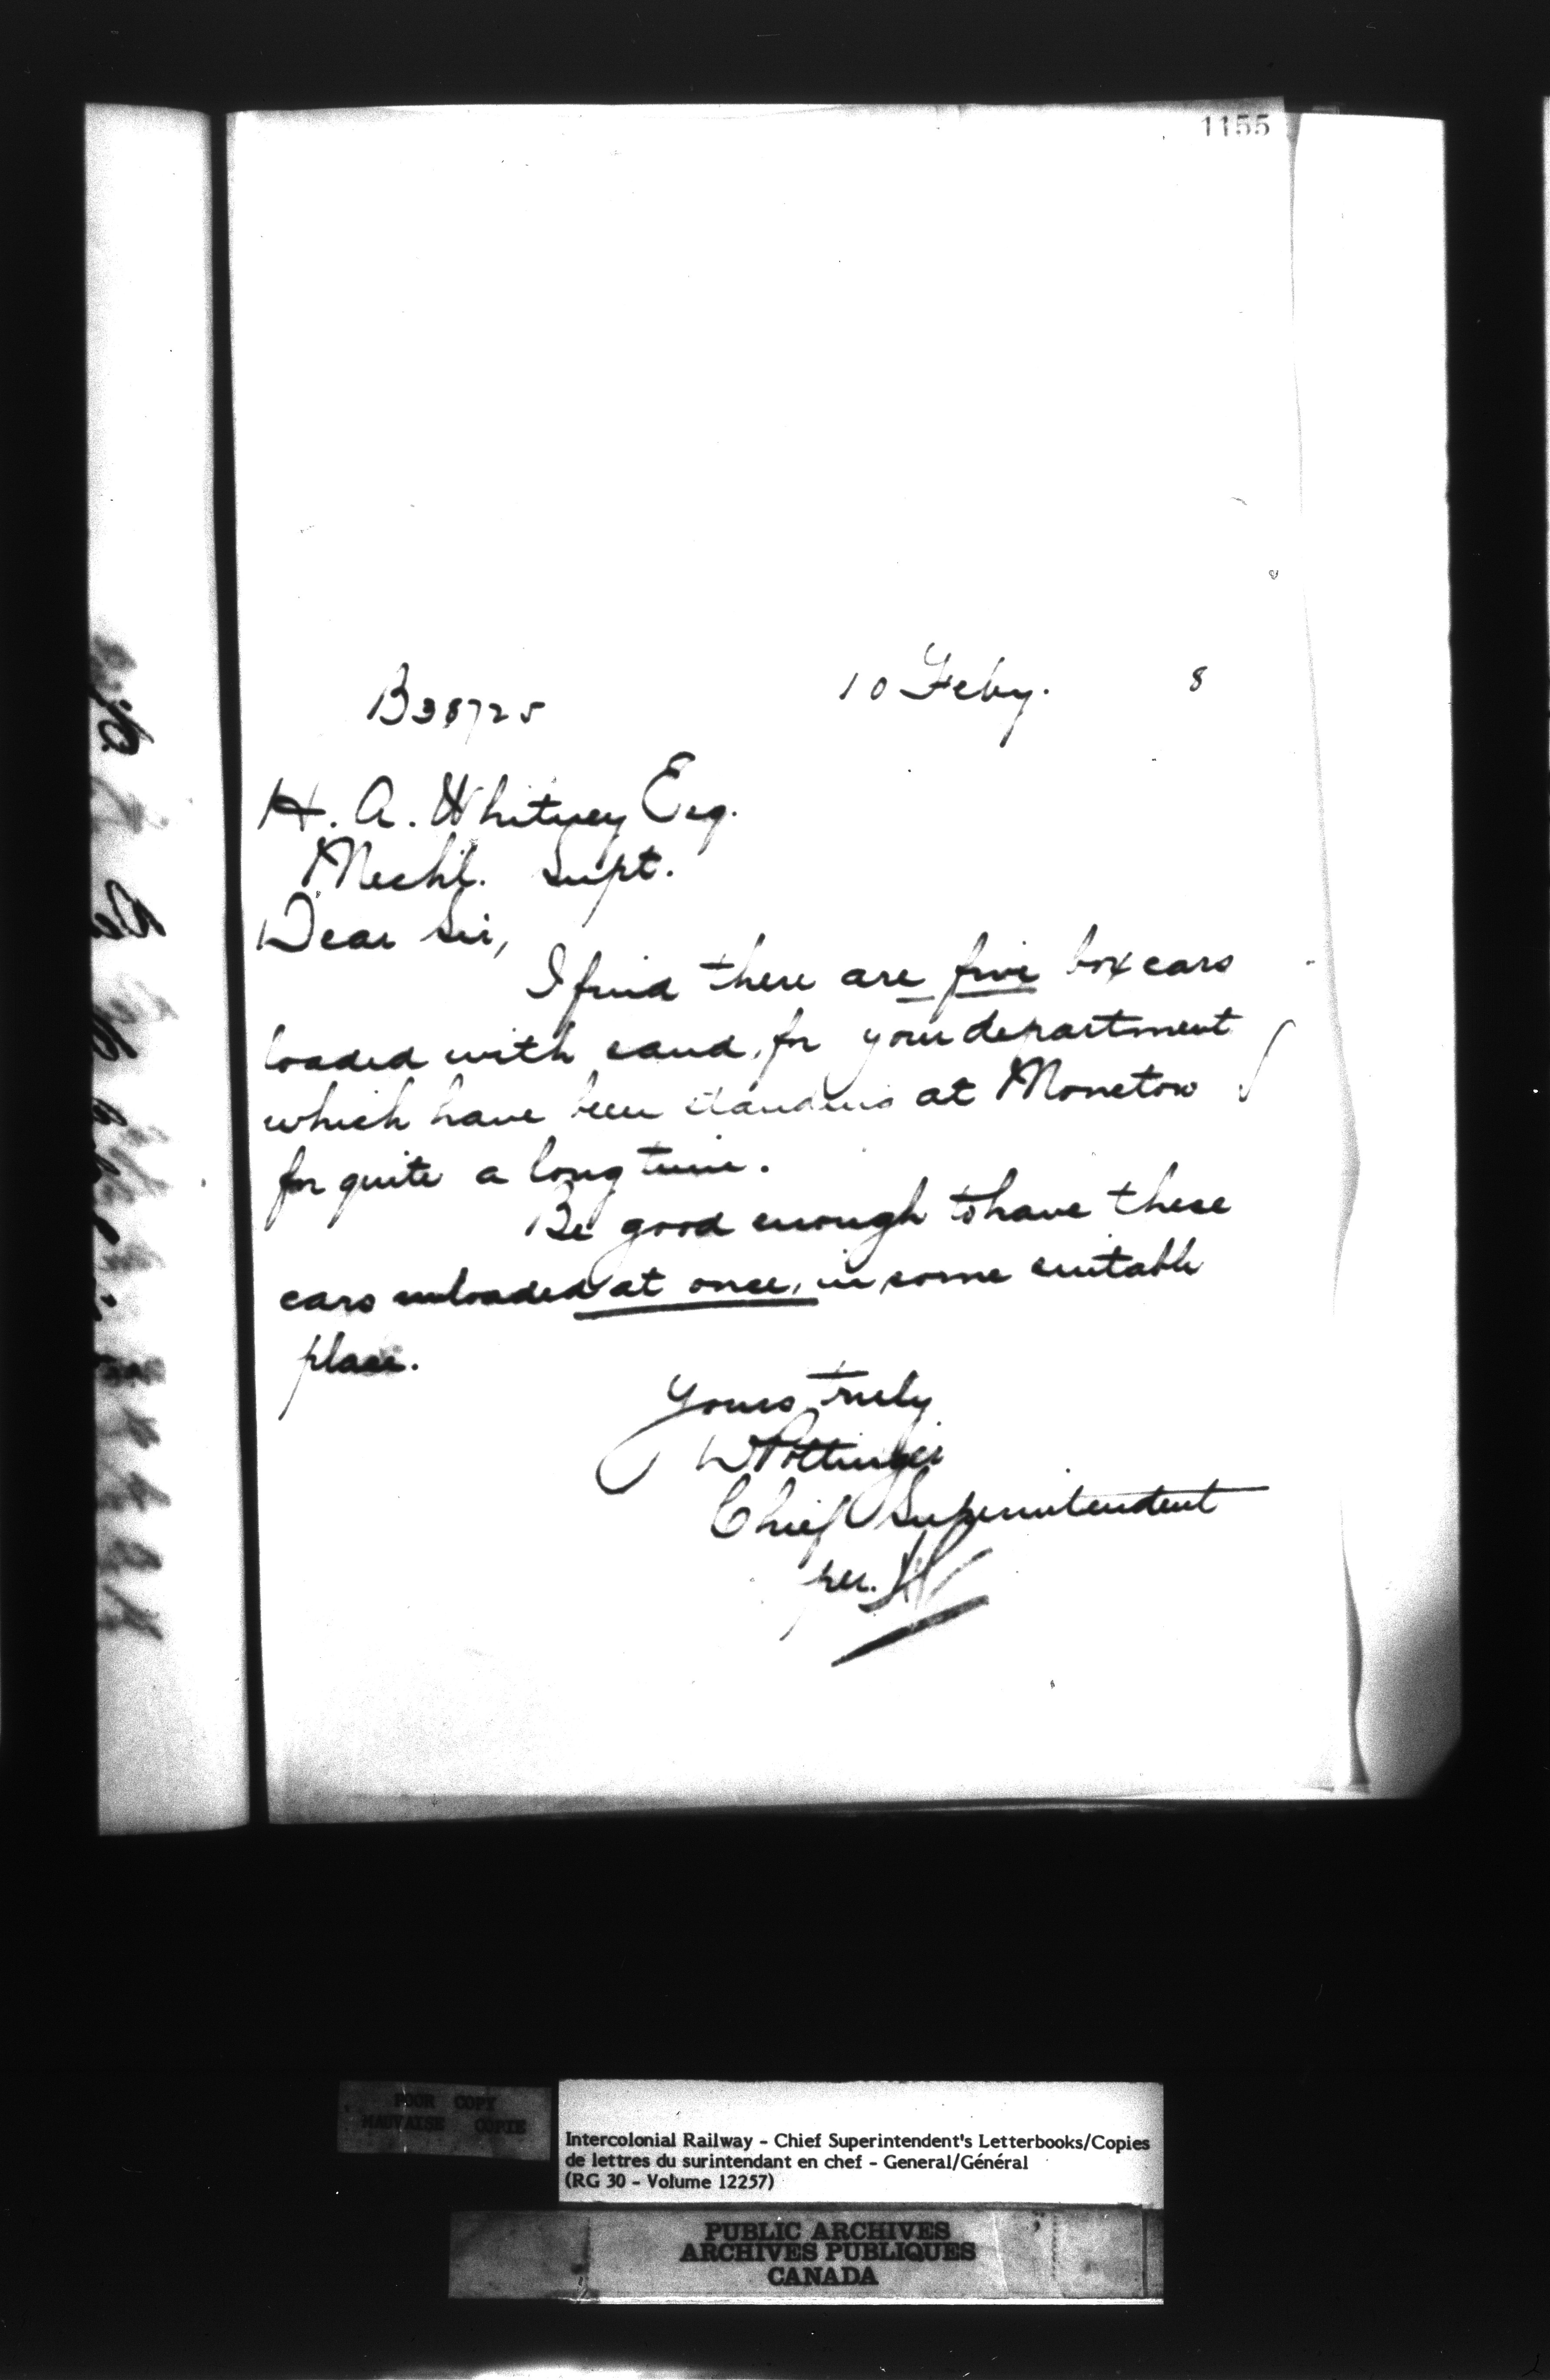 1155
B38725 10 Feby. 8
H. A. Whitney Esq.
Mechl. Supt.
Dear Sir,
I find there are five box cars
loaded with sand, for your department
which have been standing at Moncton
for quite a long time.
Be good enough to have these
cars unloaded at once, in some suitable
place.
Yours truly
D Pottinger
Chief Superintendent
per.
POOR COPY
MAUVAISE COPIE
Intercolonial Railway - Chief Superintendent's Letterbooks/Copies
de lettres du surintendant en chef - General/Général
(RG 30 - Volume 12257)
PUBLIC ARCHIVES
ARCHIVES PUBLIQUES
CANADA